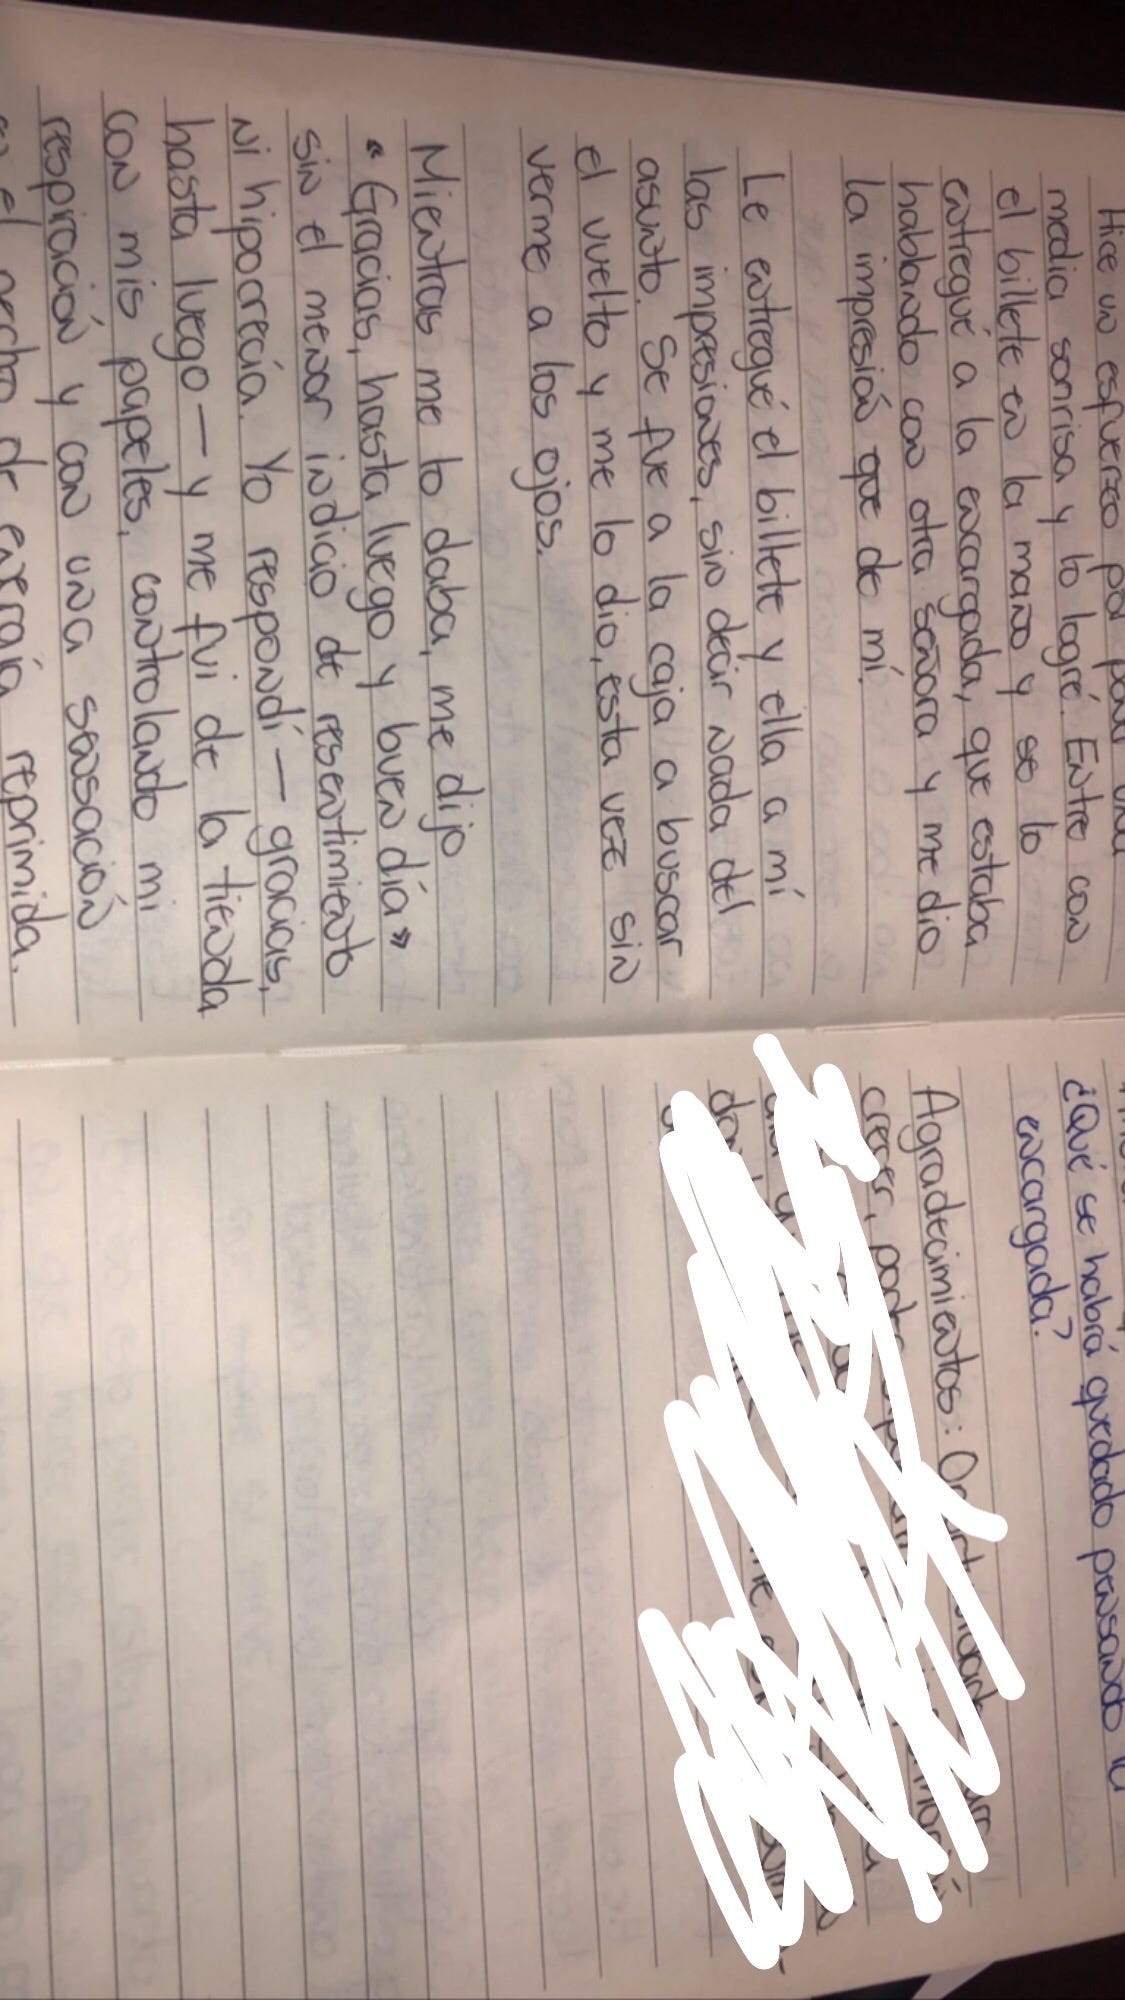 Hice un esfuerzo por poner una
media sonrisa y lo logré. Entre con
el billete en la mano y se lo
entregué a la encargada, que estaba
hablando con otra señora y me dio
la impresión que de mí.
Le entregué el billete y ella a mí
las impresiones, sin decir nada del
asunto. Se fue a la caja a buscar
el vuelto y me lo dio, esta vez sin
verme a los ojos.
Mientras me lo daba, me dijo
« Gracias, hasta luego y buen día »
sin el menor indicio de resentimiento
ni hipocrecía. Yo respondí — gracias,
hasta luego — y me fui de la tienda
con mis papeles, controlando mi
respiración y con una sensación
en el pecho de energía reprimida.
¿Qué se habrá quedado pensando la
encargada?
Agradecimientos:
crecer,